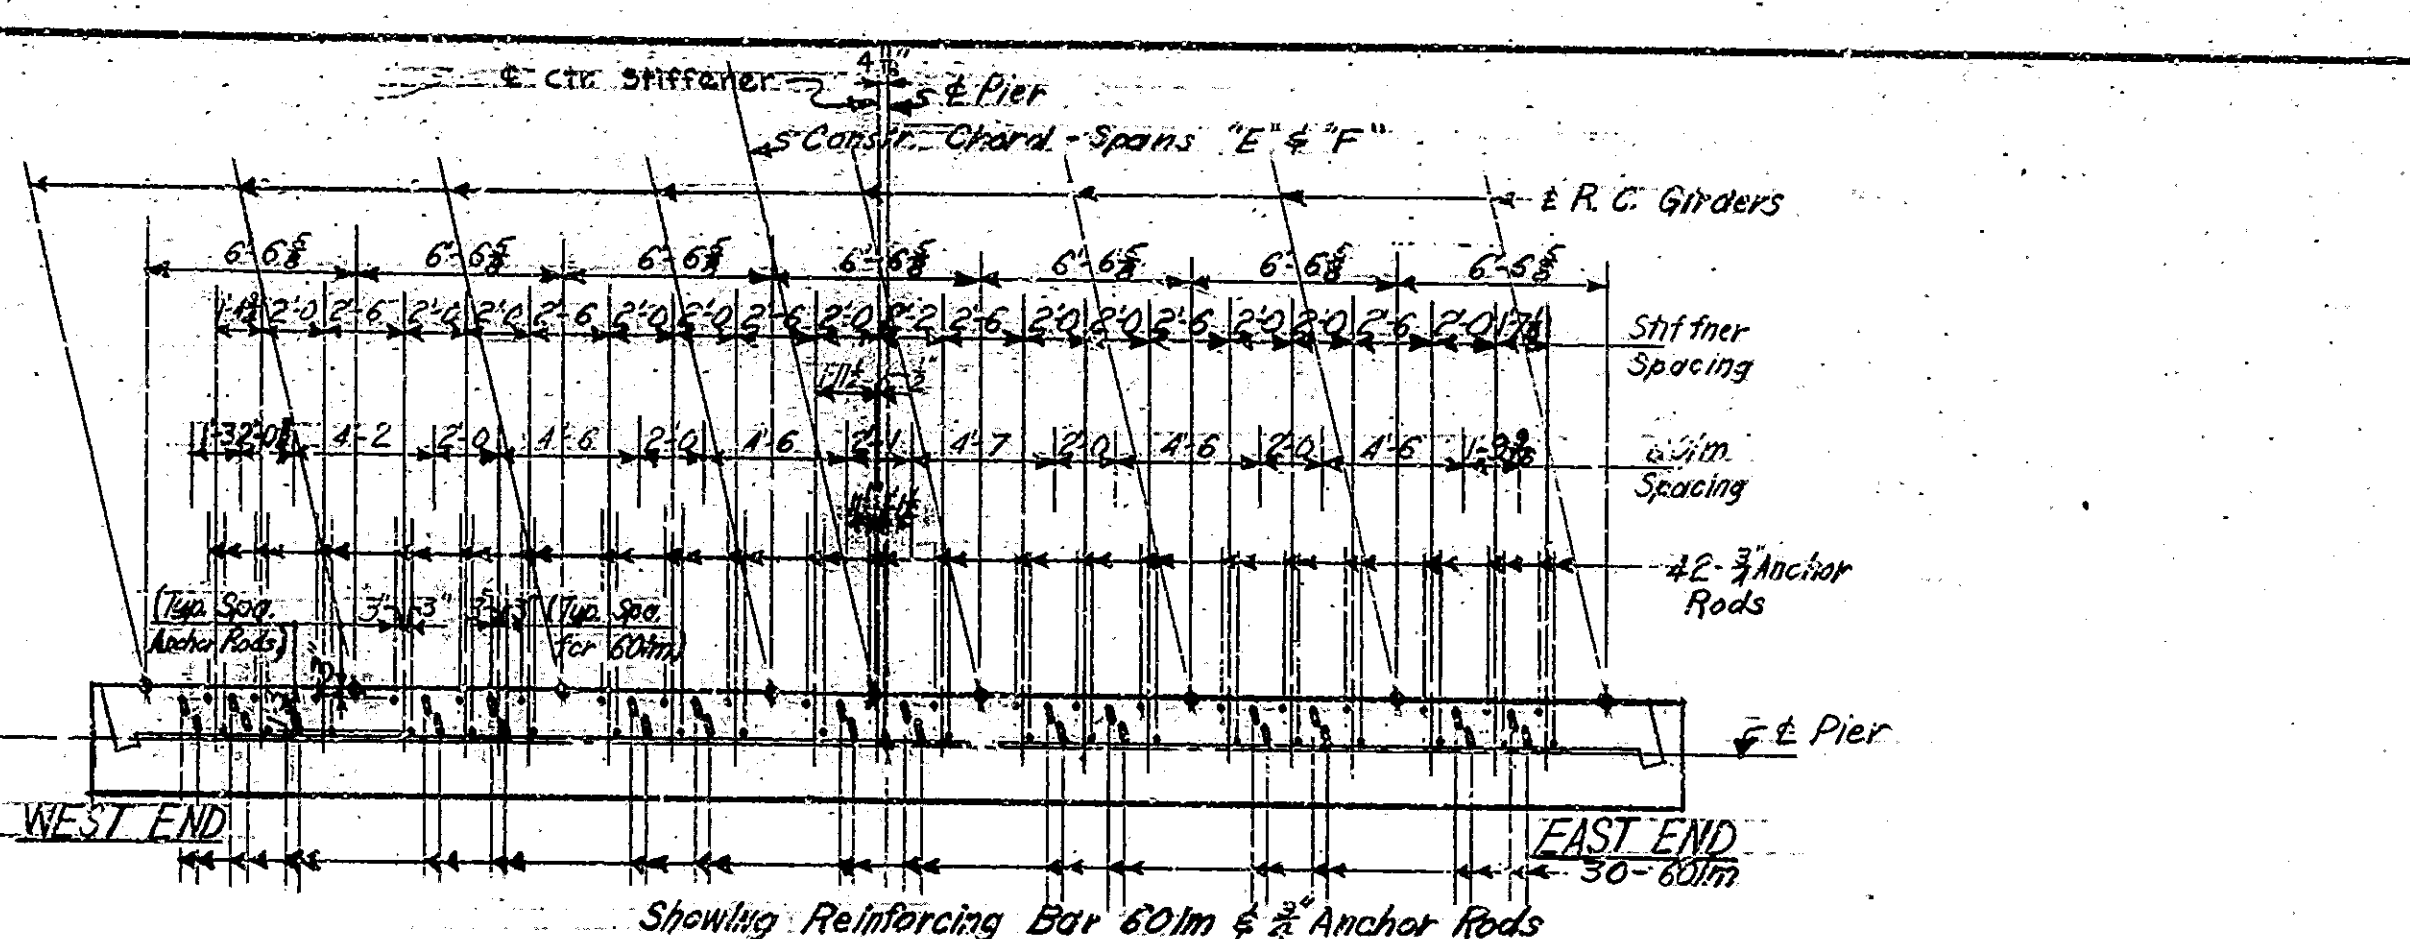 4 1/16"
℄ Ctr. Stiffener
℄ Pier
Constr. Chord - Spans "E" & "F"
℄ R. C. Girders
6'-6 5/8 6'-6 5/8 6'-6 5/8 6'-6 5/8 6'-6 5/8 6'-6 5/8 6'-6 5/8
2'-0 2'-6 2'-0 2'-0 2'-6 2'-0 2'-0 2'-6 2'-0 2'-2 2'-6 2'-0 2'-0 2'-6 2'-0 2'-0 2'-6 2'-0
Stiffner
Spacing
4'-2 2'-0 4'-6 2'-0 4'-6 2'-1 4'-7 2'-0 4'-6 2'-0 4'-6
601m
Spacing
42-3/4" Anchor
Rods
(Typ. Spa.
Anchor Rods)
3" 3" 3" 3"
(Typ. Spa.
for 601m)
℄ Pier
WEST END
EAST END
30-601m
Showing Reinforcing Bar 601m & 3/4" Anchor Rods